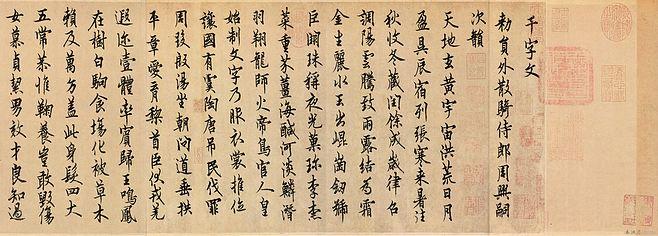 千字文
勑員外散騎侍郎周興嗣
次韻
天地玄黃宇宙洪荒日月
盈昃辰宿列張寒來暑往
秋收冬藏閏餘成歲律召
調陽雲騰致雨露結為霜
金生麗水玉出崐崗劒號
巨闕珠稱夜光菓珎李柰
菜重芥薑海醎河淡鱗潛
羽翔龍師火帝鳥官人皇
始制文字乃服衣裳推位
讓國有虞陶唐吊民伐罪
周發殷湯坐朝問道垂拱
平章愛育黎首臣伏戎羌
遐迩壹體率賓歸王鳴鳳
在樹白駒食場化被草木
賴及萬方蓋此身髮四大
五常恭惟鞠養豈敢毀傷
女慕貞絜男效才良知過